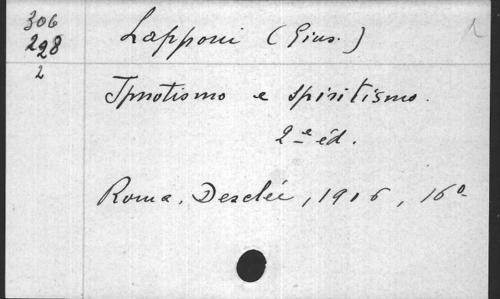 306
228
2
Lapponi (Gius.)
1
Ipnotismo e spiritismo.
2e éd.
Roma, Desclée, 1906, 16o